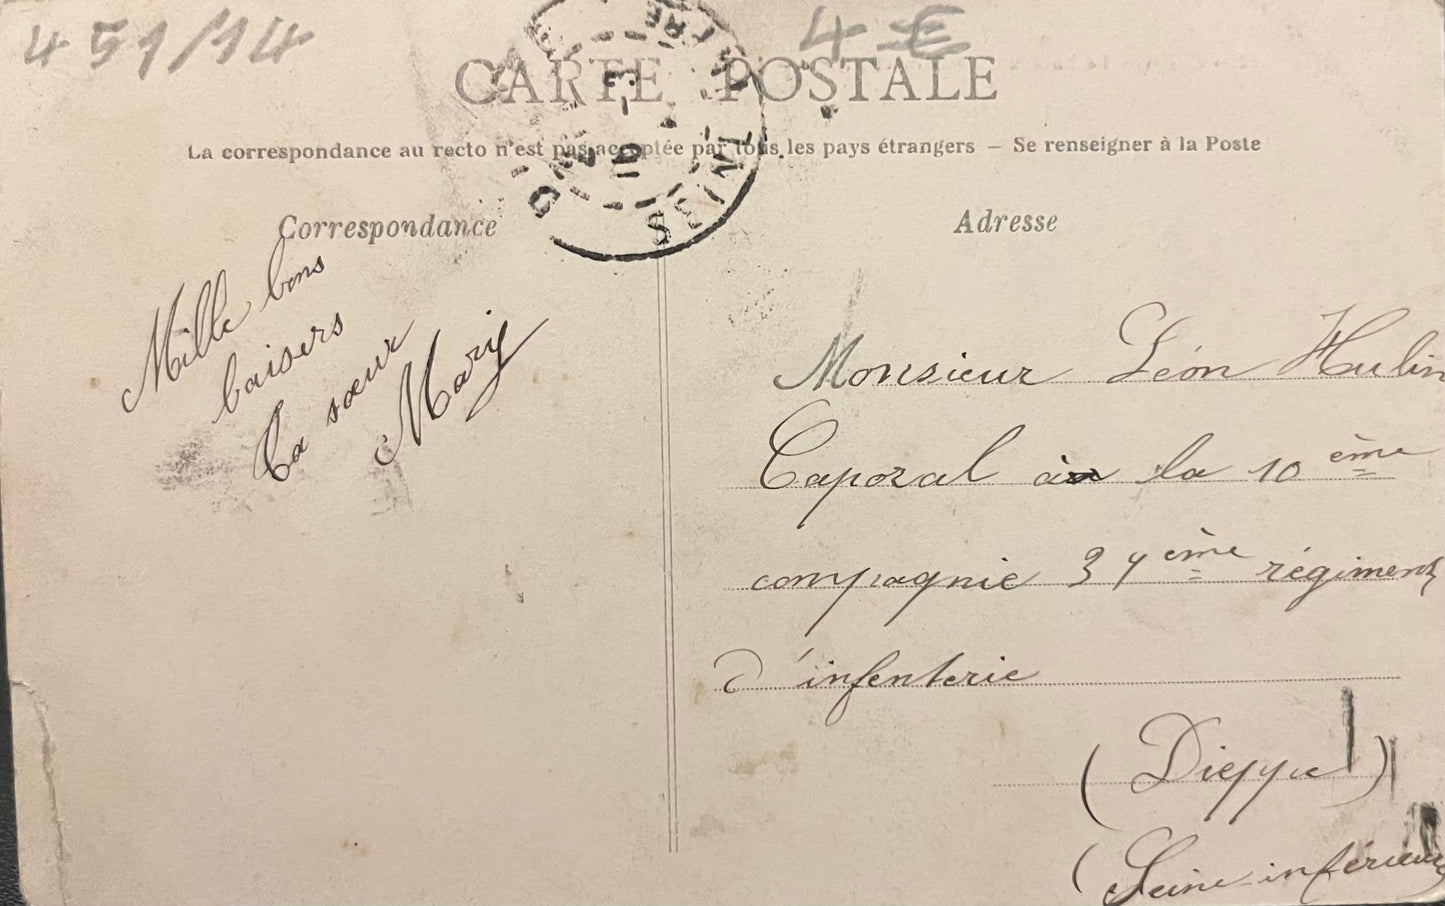 451/14
4 €
CARTE POSTALE
La correspondance au recto n'est pas acceptée par tous les pays étrangers — Se renseigner à la Poste
Correspondance
Mille bons
baisers
Ta sœur
Mary
Adresse
Monsieur Léon Hulin
Caporal à la 10 ème
compagnie 39 ème régiment
d'infenterie
(Dieppe)
(Seine-inférieure